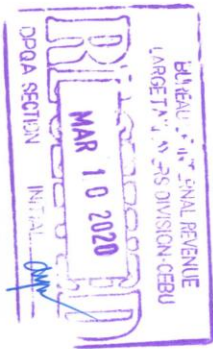 BUREAU INTERNAL REVENUE
LARGE TAXPAYERS DIVISION CEBU
RECEIVED
MAR 10 2020
DPQA SECTION INITIAL